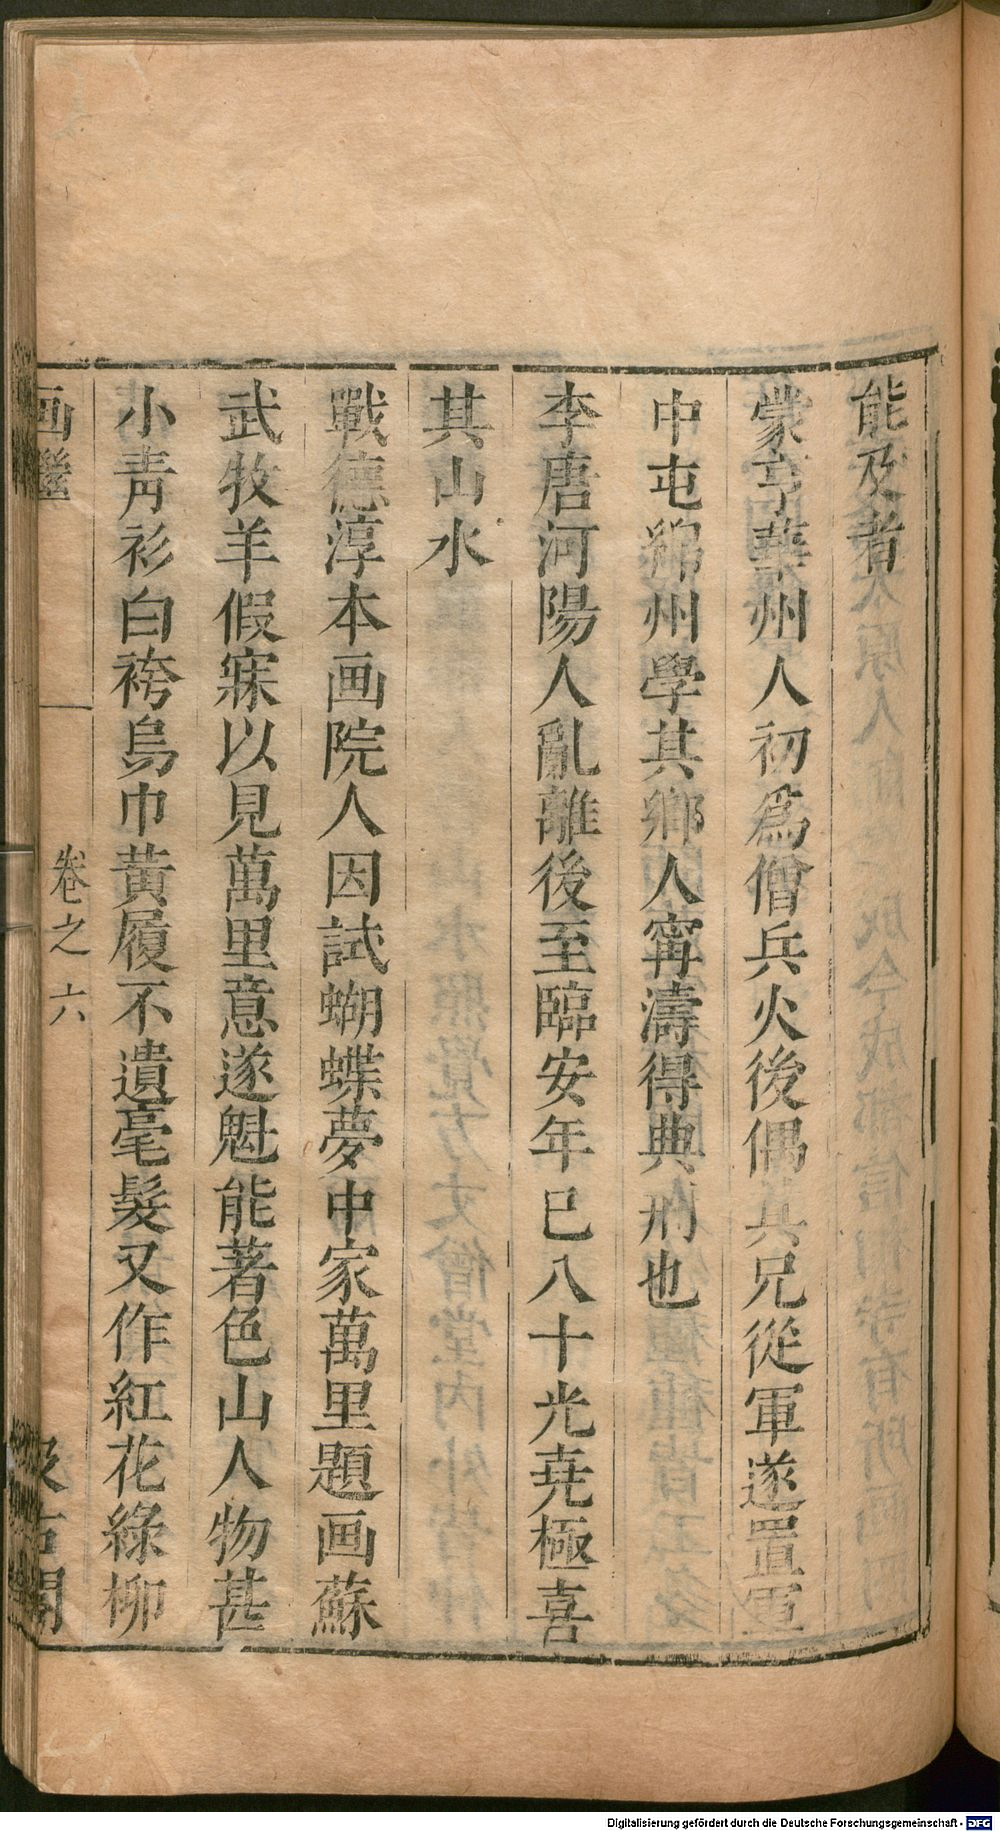 能及者
蒙亨華州人初爲僧兵火後偶其兄從軍遂置軍
中屯綿州學其鄉人甯濤得典刑也
李唐河陽人亂離後至臨安年已八十光堯極喜
其山水
戰德淳本画院人因試蝴蝶夢中家萬里題画蘇
武牧羊假寐以見萬里意遂魁能著色山人物甚
小青衫白袴烏巾黃履不遺毫髮又作紅花綠柳
画繼
卷之六
汲古閣
Digitalisierung gefördert durch die Deutsche Forschungsgemeinschaft - DFG